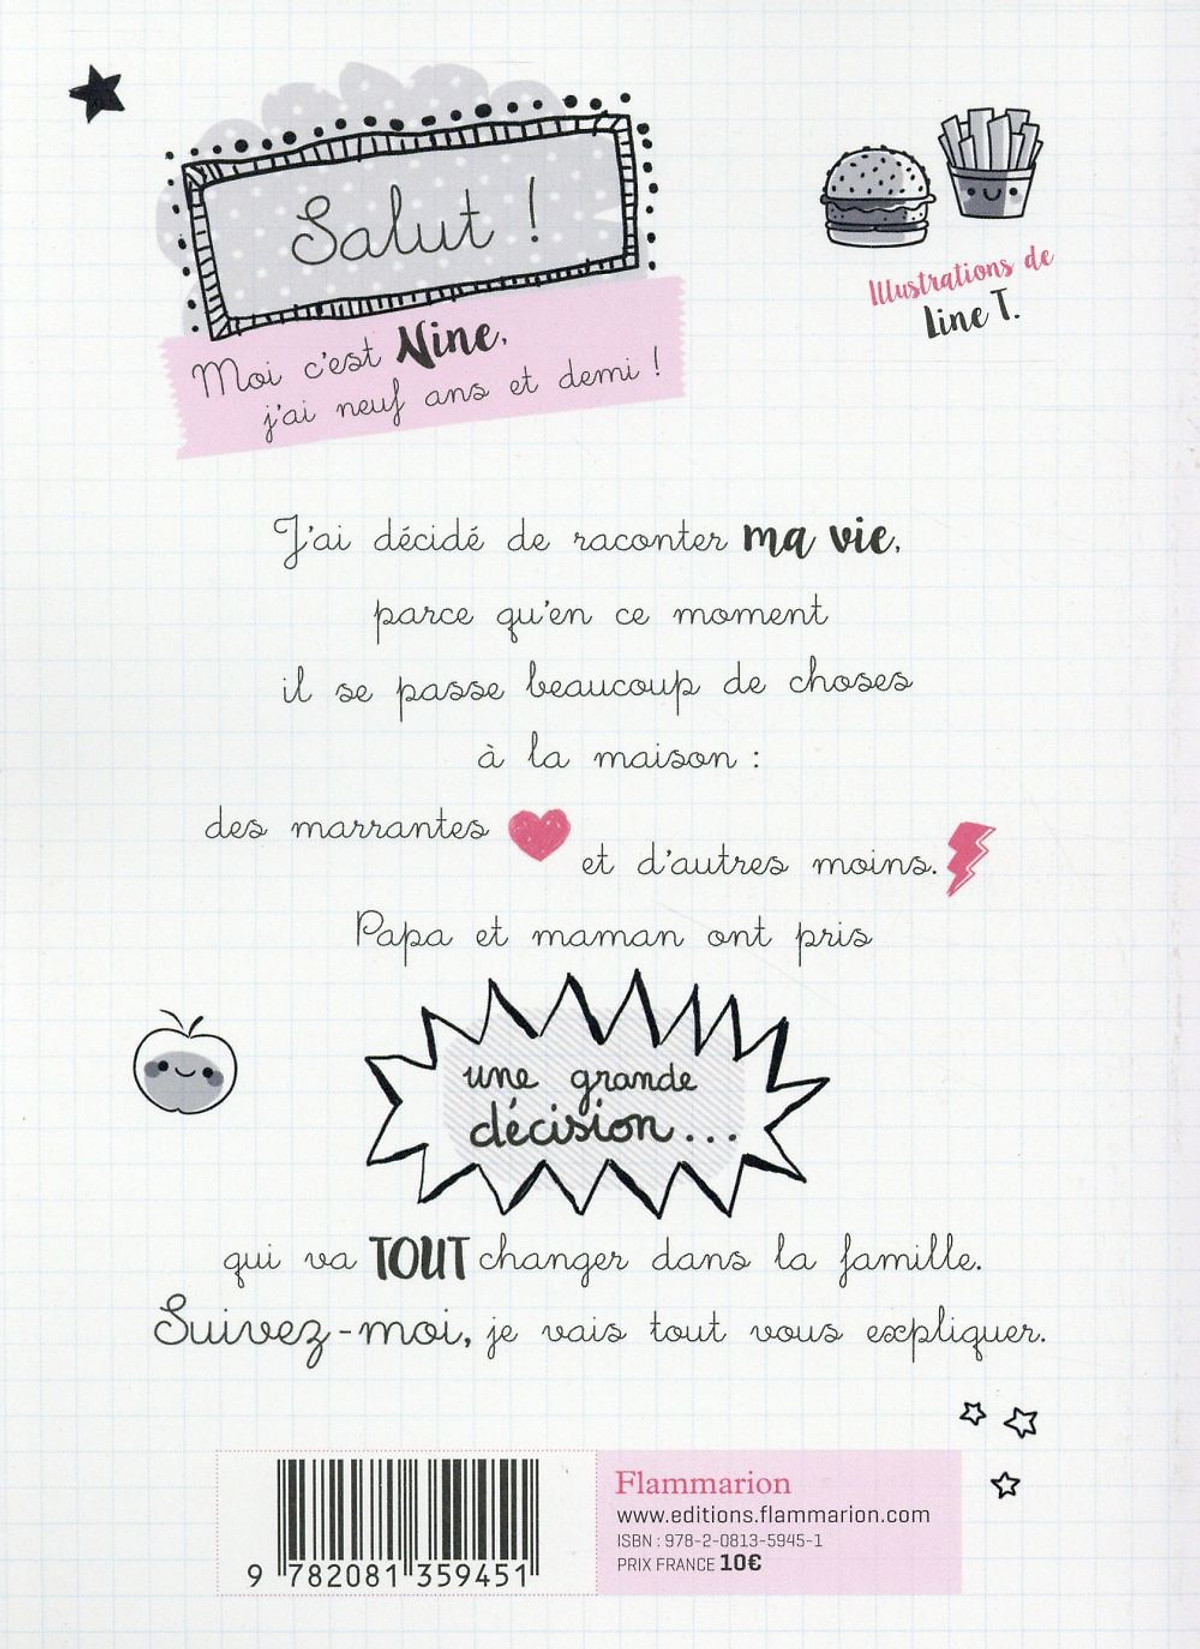 Salut !
Illustrations de
Line T.
Moi c'est Nine,
j'ai neuf ans et demi !
J'ai décidé de raconter ma vie,
parce qu'en ce moment
il se passe beaucoup de choses
à la maison :
des marrantes
et d'autres moins.
Papa et maman ont pris
une grande
décision...
qui va TOUT changer dans la famille.
Suivez-moi, je vais tout vous expliquer.
Flammarion
www.editions.flammarion.com
ISBN : 978-2-0813-5945-1
PRIX FRANCE 10€
9 782081 359451